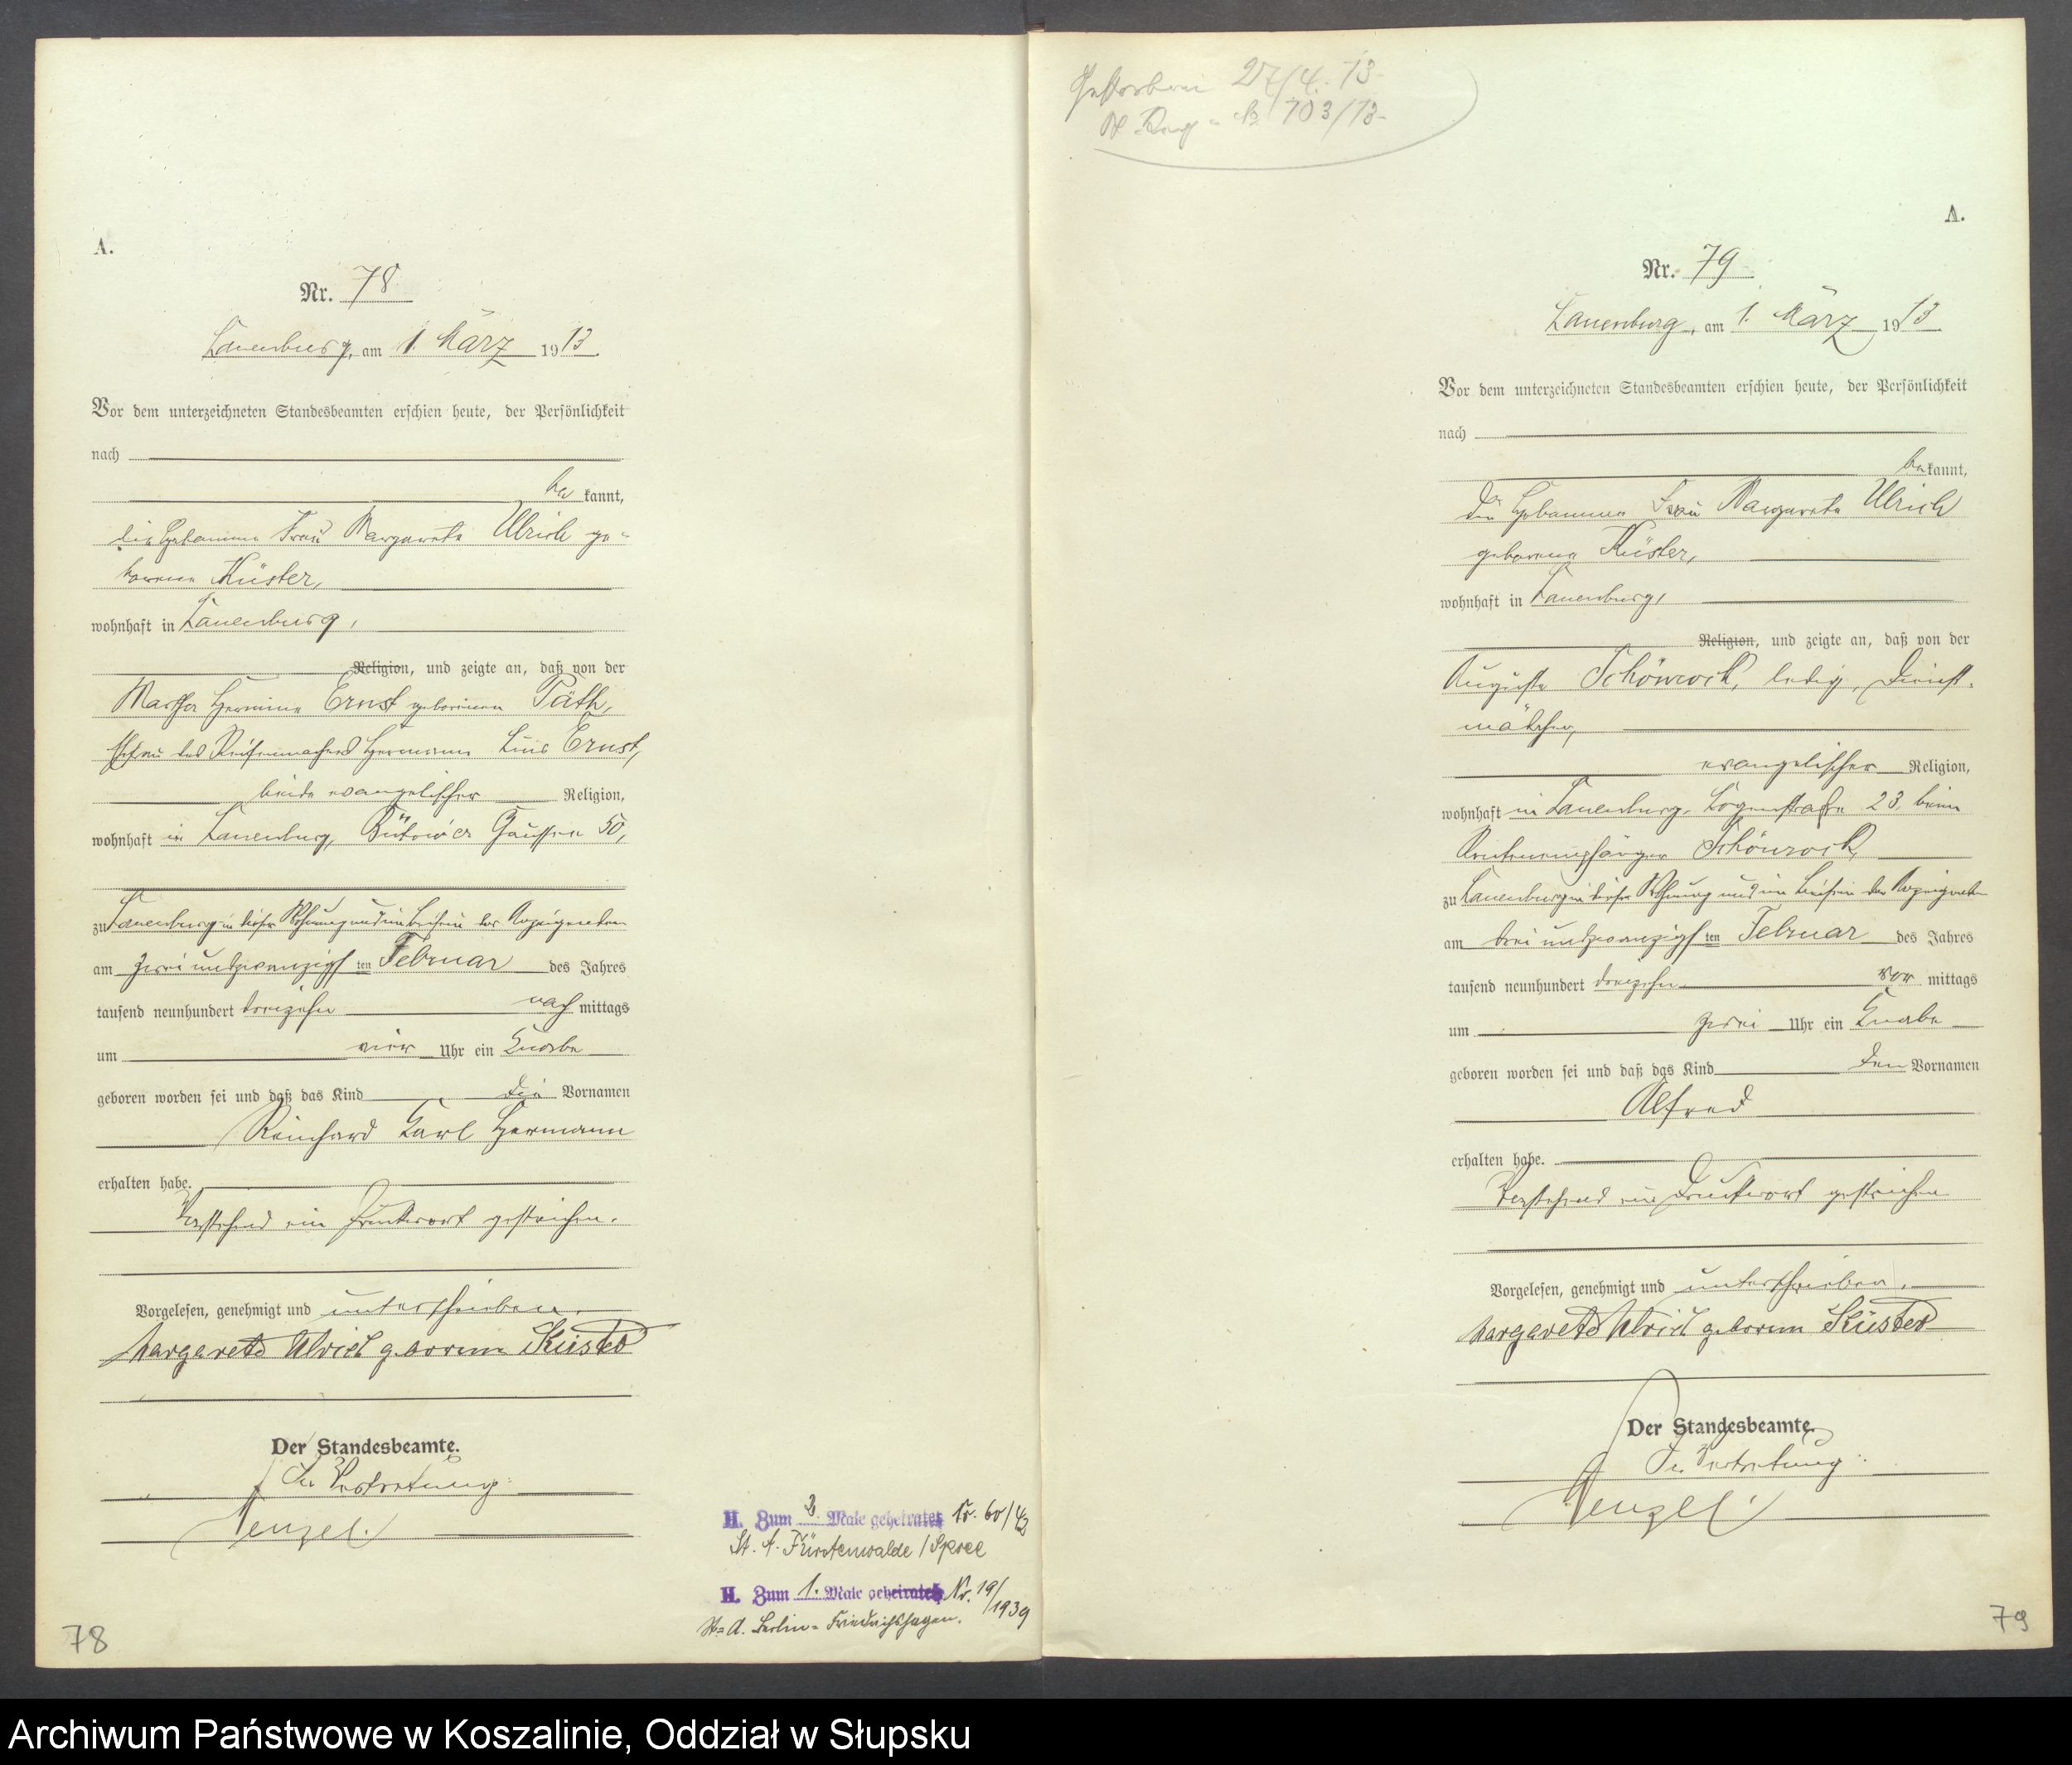 A.
Nr. 78
Lauenburg, am 1. März 1913.
Vor dem unterzeichneten Standesbeamten erschien heute, der Persönlichkeit
nach
be kannt,
die Hebamme Frau Margarete Ulrich ge-
borene Küster,
wohnhaft in Lauenburg,
Religion, und zeigte an, daß von der
Martha Hermine Ernst geborenen Päth,
Ehefrau des Hermann Ernst,
beide evangelischer Religion,
wohnhaft in Lauenburg, Bütower Chaussee 50,
zu Lauenburg in dieser Wohnung und im Beisein der Anzeigenden
am zwei und zwanzigsten Februar des Jahres
tausend neunhundert dreizehn nach mittags
um vier Uhr ein Knabe
geboren worden sei und daß das Kind die Vornamen
Reinhard Karl Hermann
erhalten habe.
Vorstehend ein Druckwort gestrichen.
Vorgelesen, genehmigt und unterschrieben.
Margarete Ulrich geborene Küster
Der Standesbeamte.
In Vertretung:
Wenzel.
H. Zum 2. Male geheiratet Nr. 60/42
St. A. Fürstenwalde / Spree
H. Zum 1. Male geheiratet Nr. 19/1939
St. A. Berlin-Friedrichshagen.
78
Gestorben 27/4. 13
No 103/13
A.
Nr. 79
Lauenburg, am 1. März 1913
Vor dem unterzeichneten Standesbeamten erschien heute, der Persönlichkeit
nach
be kannt,
die Hebamme Frau Margarete Ulrich
geborene Küster,
wohnhaft in Lauenburg,
Religion, und zeigte an, daß von der
Auguste Schönrock, ledig, Dienst-
mädchen,
evangelischer Religion,
wohnhaft in Lauenburg, 23 beim
Rentenempfänger Schönrock,
zu Lauenburg in dieser Wohnung und im Beisein der Anzeigenden
am drei und zwanzigsten Februar des Jahres
tausend neunhundert dreizehn vor mittags
um zwei Uhr ein Knabe
geboren worden sei und daß das Kind den Vornamen
Alfred
erhalten habe.
Vorstehend ein Druckwort gestrichen
Vorgelesen, genehmigt und unterschrieben.
Margarete Ulrich geborene Küster
Der Standesbeamte.
In Vertretung:
Wenzel.
79
Archiwum Państwowe w Koszalinie, Oddział w Słupsku